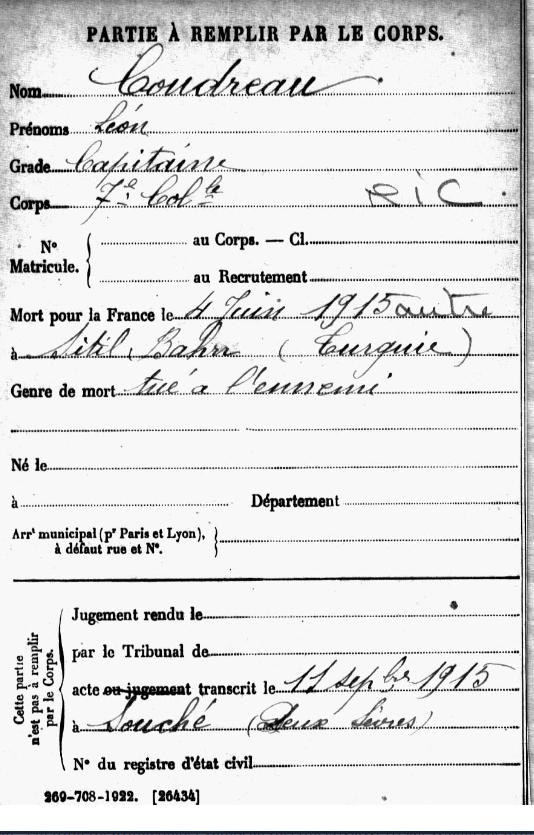 PARTIE À REMPLIR PAR LE CORPS.
Nom Coudreau
Prénoms Léon
Grade Capitaine
Corps 7e Colle RIC
No au Corps. — Cl.
Matricule. au Recrutement
Mort pour la France le 4 Juin 1915 autre
à Sitil Bahr (Turquie)
Genre de mort tué à l'ennemi
Né le
à Département
Arrt municipal (pr Paris et Lyon),
à défaut rue et No.
Cette partie n'est pas à remplir par le Corps.
Jugement rendu le
par le Tribunal de
acte ou jugement transcrit le 11 sepbre 1915
à Souché (Deux Sèvres)
No du registre d'état civil
269-708-1922. [26434]